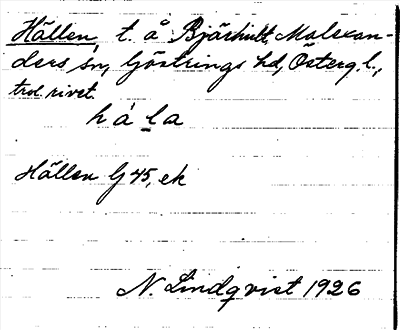 Hällen, t. å Bjärhult, Malexan-
ders sn, Göstrings hd, Österg. l.,
trol. rivet.
hȧ l̲a
Hällen G 45, ek
N Lindqvist 1926